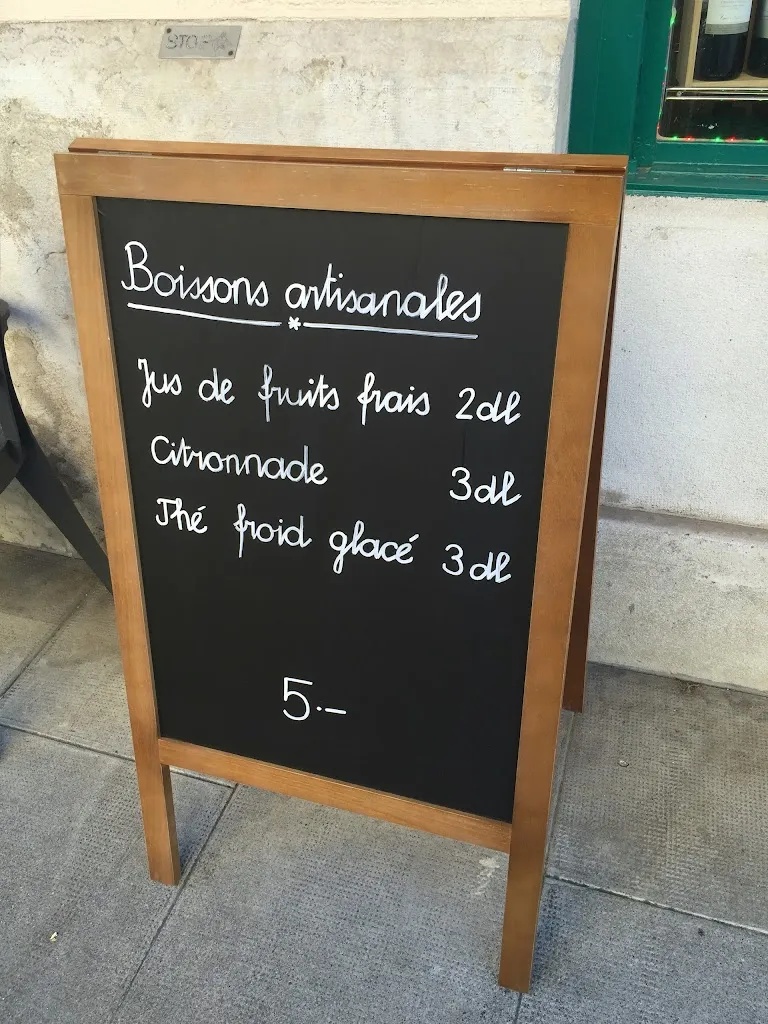 Boissons artisanales
*
Jus de fruits frais 2dl
Citronnade 3dl
Thé froid glacé 3dl
5.-